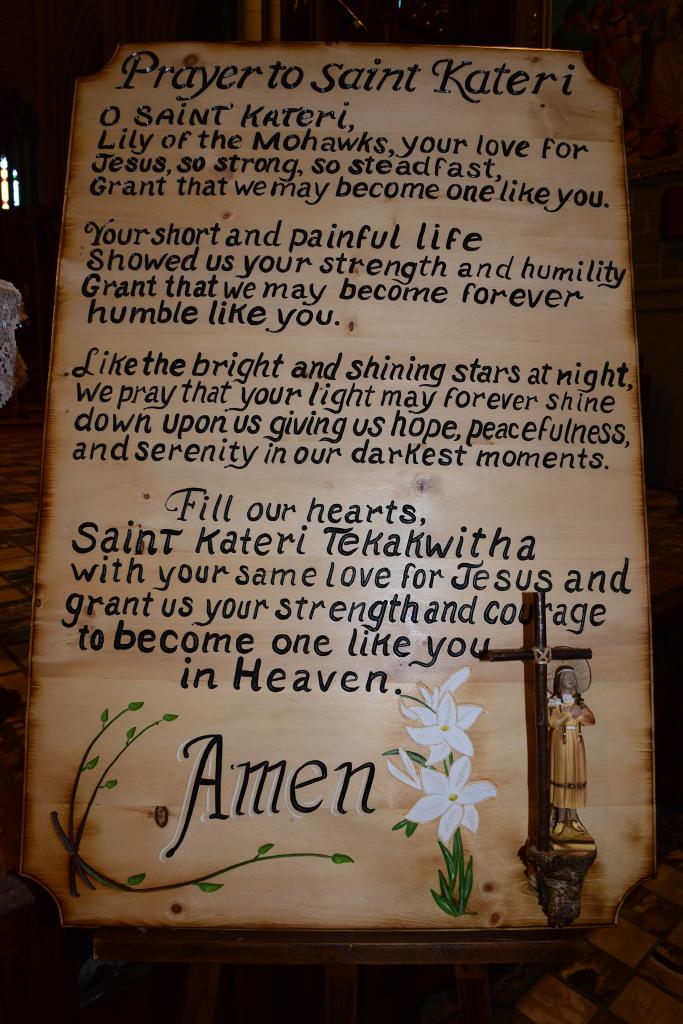 Prayer to Saint Kateri
O SAINT KATERI,
Lily of the Mohawks, your love for
Jesus, so strong, so steadfast,
Grant that we may become one like you.
Your short and painful life
Showed us your strength and humility
Grant that we may become forever
humble like you.
Like the bright and shining stars at night,
we pray that your light may forever shine
down upon us giving us hope, peacefulness,
and serenity in our darkest moments.
Fill our hearts,
Saint Kateri Tekakwitha
with your same love for Jesus and
grant us your strength and courage
to become one like you
in Heaven.
Amen